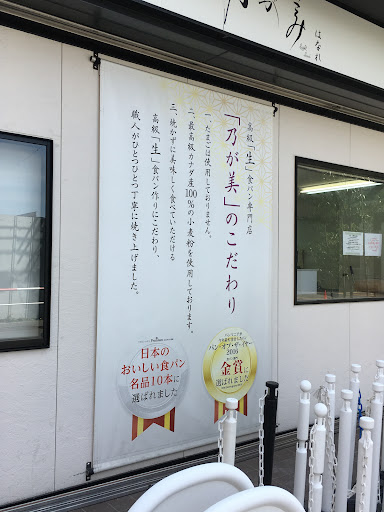 乃が美
はなれ
高級「生」食パン専門店
「乃が美」のこだわり
一、たまごは使用しておりません。
二、最高級カナダ産100%の小麦粉を使用しております。
三、焼かずに美味しく食べていただける
高級「生」食パン作りにこだわり、
職人がひとつひとつ丁寧に焼き上げました。
日本の
おいしい食パン
名品10本に
選ばれました
パン・オブ・ザ・イヤー
2016
金賞に
選ばれました